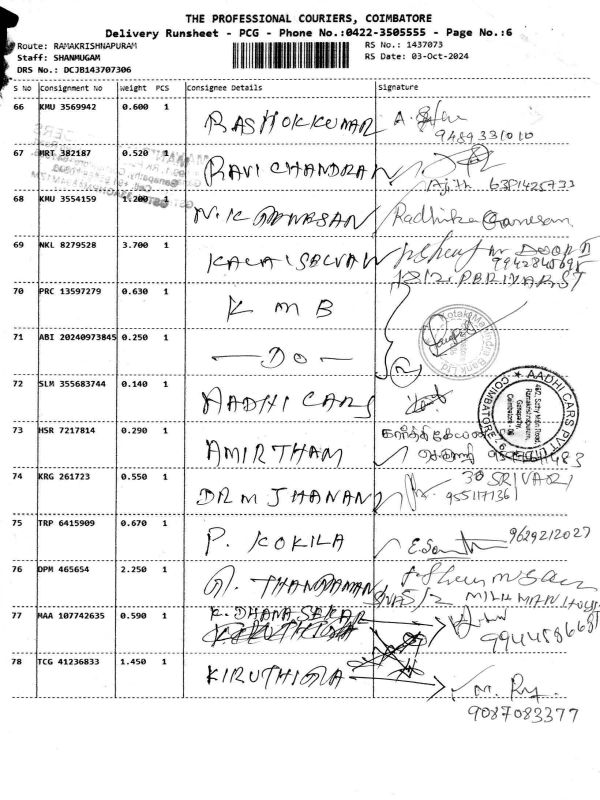 THE PROFESSIONAL COURIERS, COIMBATORE
Delivery Runsheet - PCG - Phone No.:0422-3505555 - Page No.:6
Route: RAMAKRISHNAPURAM
RS No.: 1437073
Staff: SHANMUGAM
RS Date: 03-Oct-2024
DRS No.: DCJB143707306
S No Consignment No Weight PCS Consignee Details Signature
66 KMU 3569942 0.600 1 R ASHOKKUMAR A.
9489331010
67 MRT 382187 0.520 1 RAVICHANDRAN
Ajith 6381425733
68 KMU 3554159 1.200 1 N.K GANESAN Radhika Ganesan
69 NKL 8279528 3.700 1 KALAISELVAN
PERIYAR ST
70 PRC 13597279 0.630 1 K M B
Kotak Mahindra Bank Ltd
71 ABI 20240973845 0.250 1 — DO — 2
72 SLM 355683744 0.140 1 AADHI CARS
AADHI CARS PVT
COIMBATORE
462, Sathy Main Road,
Ramakrishnapuram,
Ganapathy,
Coimbatore
73 HSR 7217814 0.290 1 AMIRTHAM
74 KRG 261723 0.550 1 DR M JHANAN 30 SRIVARI
9551171361
75 TRP 6415909 0.670 1 P. KOKILA 9629212027
76 DPM 465654 2.250 1
77 MAA 107742635 0.590 1 K. DHANA SEKAR
78 TCG 41236833 1.450 1 KIRUTHIGA
9087083377